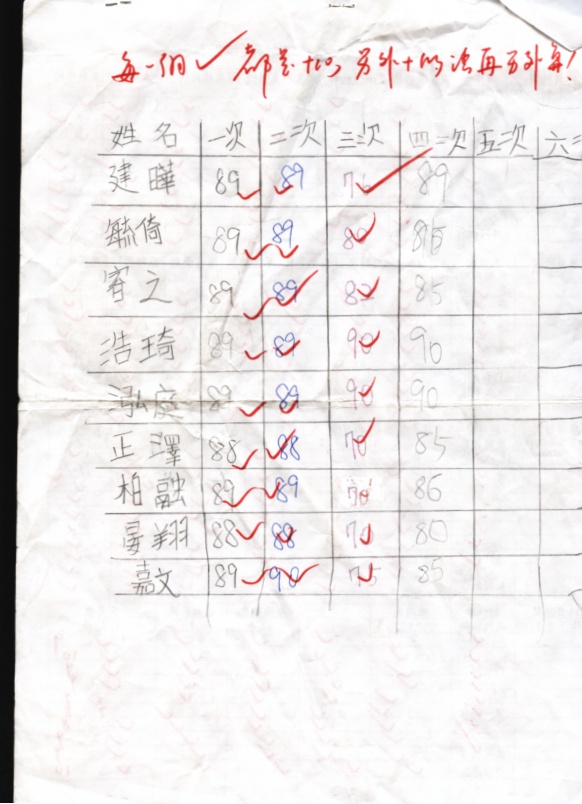 每一個✓都是+10分 另外+的請再另外算!
姓名 一次 二次 三次 四次 五次 六
建曄 89 89 89
毓倚 89 89 85
宥之 89 89 82 85
浩琦 89 89 90 90
泓庭 89 89 90 90
正澤 88 88 70 85
柏融 89 89 70 86
晏翔 88 88 70 80
嘉文 89 90 75 85